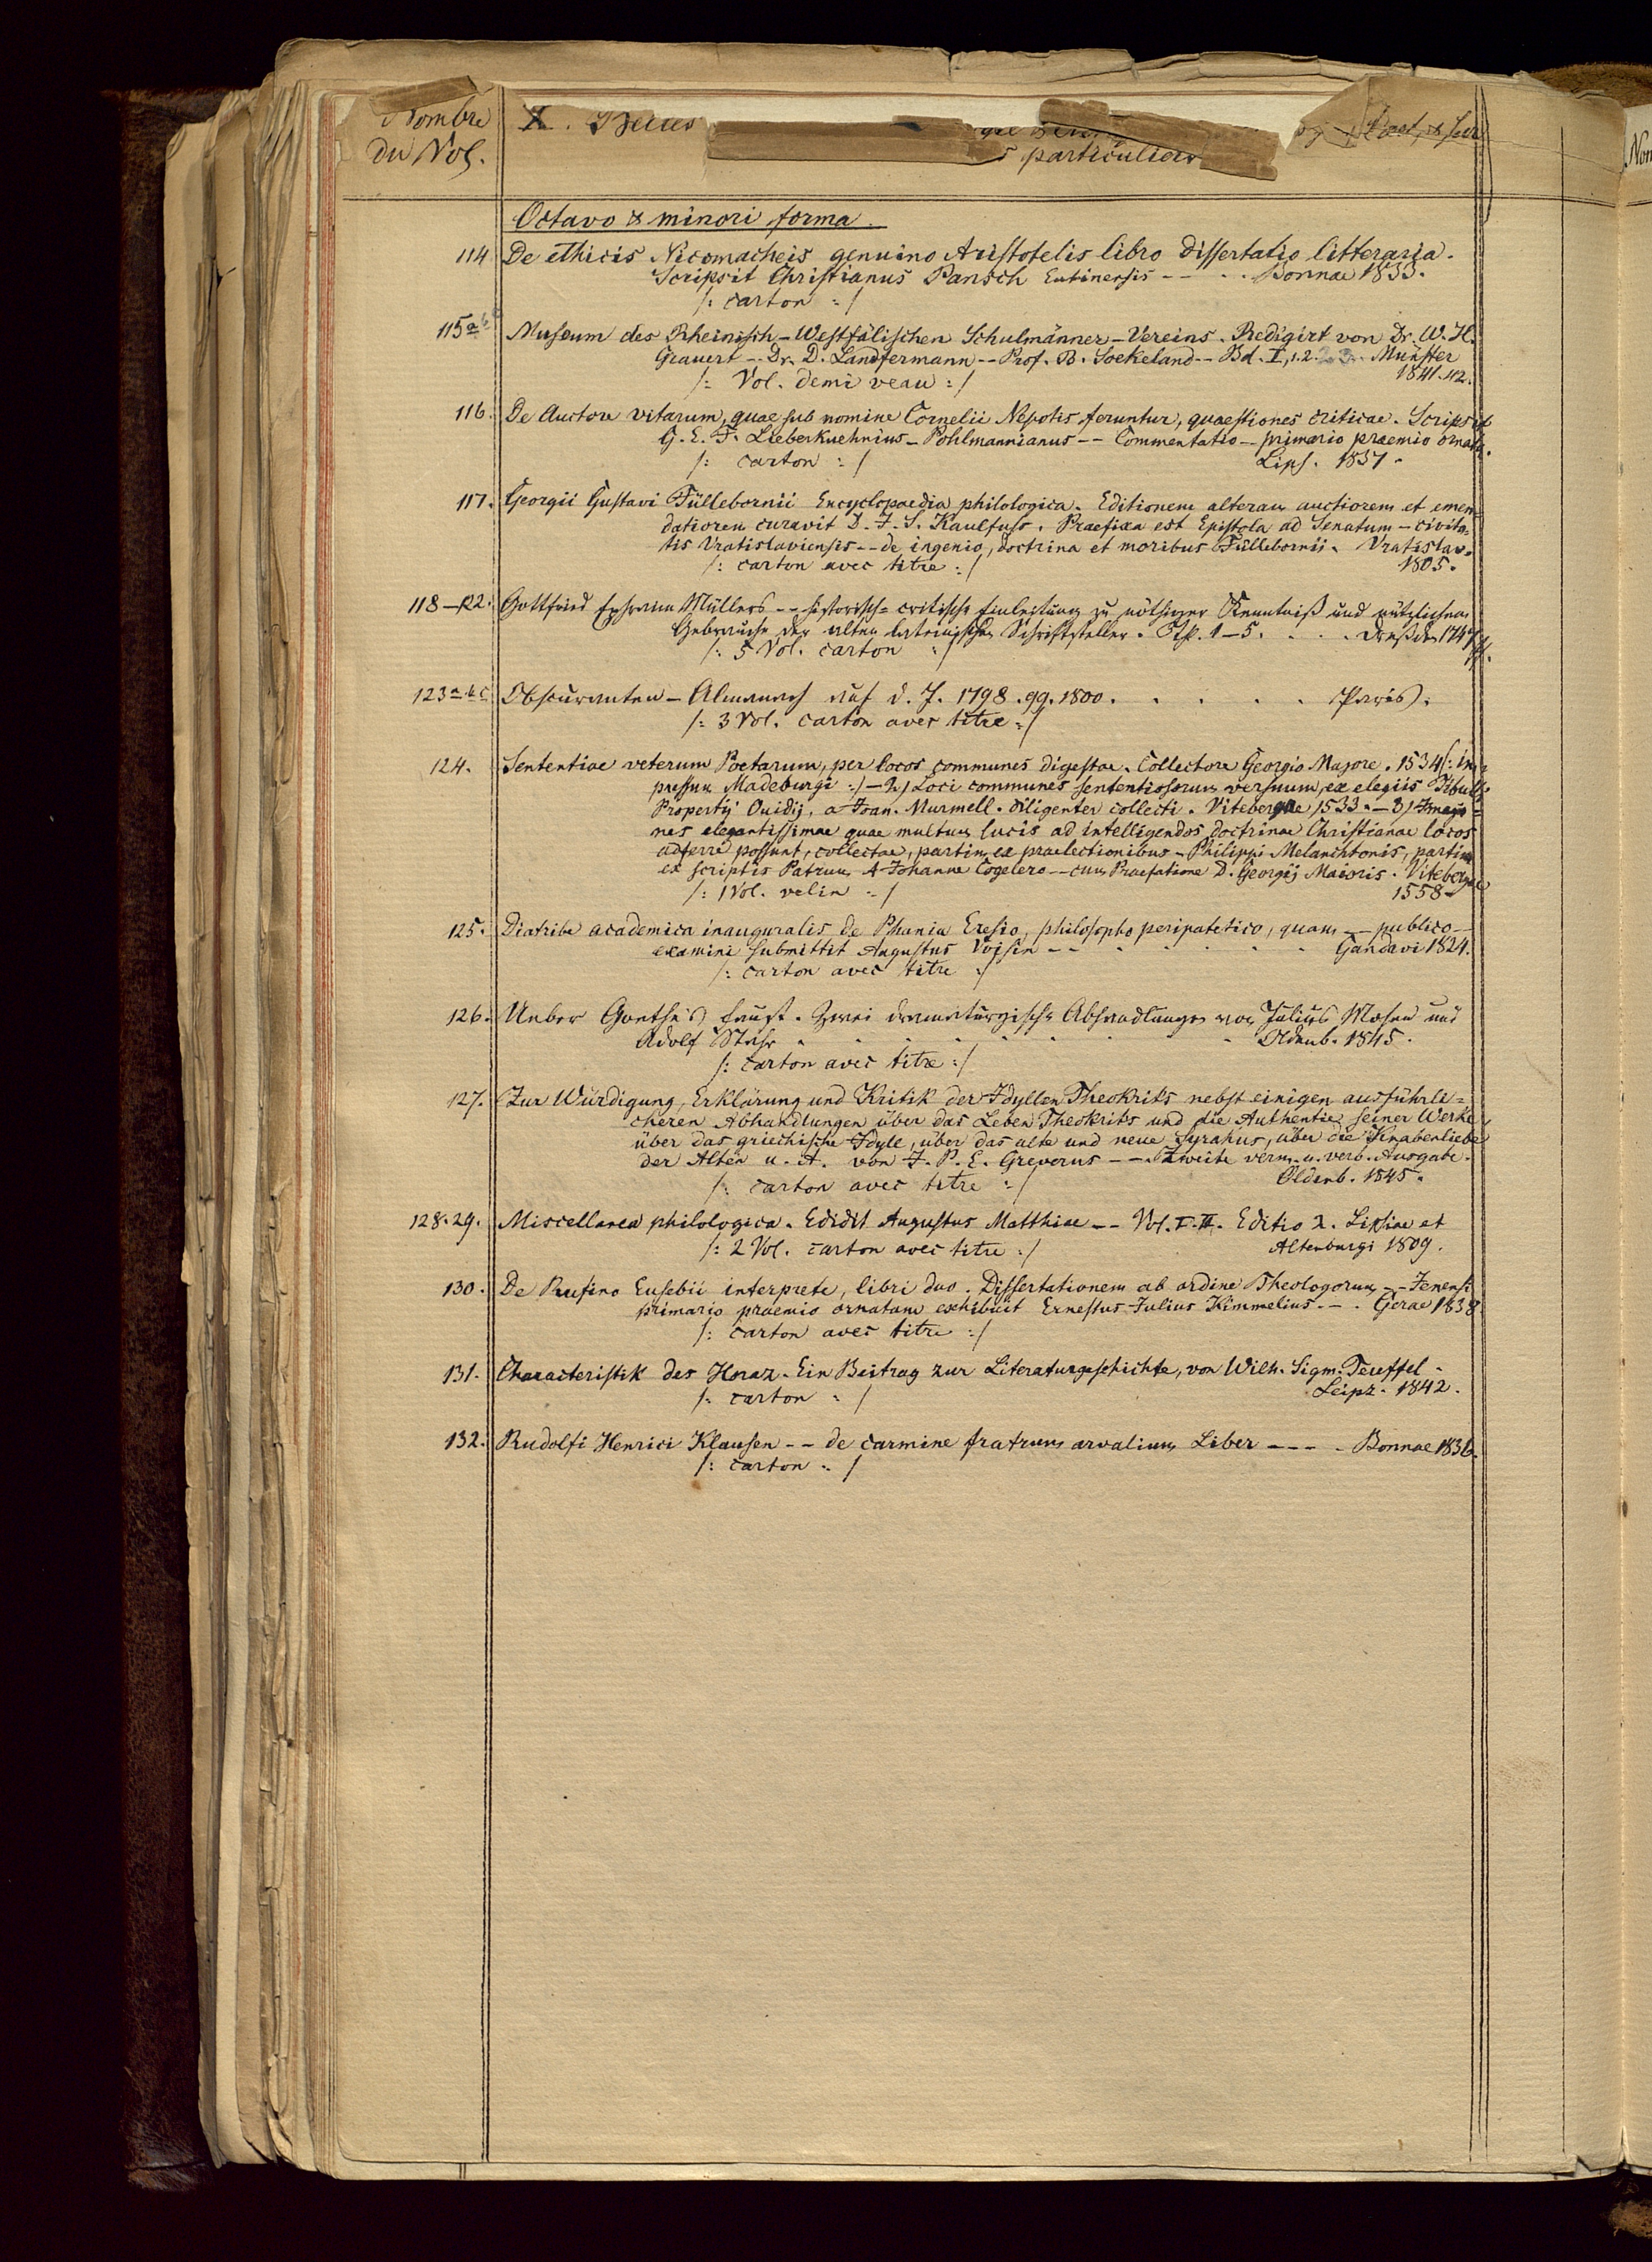 Nombre
du Vol.
X.
particuliers
Octavo & minori forma.
114 De ethicis Nicomacheis genuino Aristotelis libro dissertatio litteraria.
Scripsit Christianus Pansch Eutinensis -- . . Bonnae 1833.
/: carton :/
115 a b Museum des Rheinisch-Westfälischen Schulmänner-Vereins. Redigirt von Dr. W. H.
Grauert -- Dr. D. Landfermann -- Prof. B. Soekeland -- Bd. I, 1. 2. Münster
/: Vol. demi veau :/ 1841.42.
116. De Auctore vitarum, quae sub nomine Cornelii Nepotis feruntur, quaestiones criticae. Scripsit
G. E. F. Lieberkuehnius - Pohlmannianus -- Commentatio -- primario praemio ornata.
/: carton :/ Lips. 1837.
117. Georgii Gustavi Füllebornii Encyclopaedia philologica. Editionem alteram auctiorem et emen-
datiorem curavit D. J. S. Kaulfuss. Praefixa est Epistola ad Senatum - civita-
tis Vratislaviensis -- de ingenio, doctrina et moribus Füllebornii. Vratislav.
/: carton avec titre :/ 1805.
118-22. Gottfried Ephraim Müllers -- historisch-critische Einleitung zu nöthiger Kenntniß und nützlichem
Gebrauche der alten lateinischen Schriftsteller. Th. 1-5. . . . Dresden 1747
/: 5 Vol. carton :/ ff.
123 a b c Obscuranten-Almanach auf d. J. 1798. 99. 1800. . . . . . Paris.
/: 3 Vol. carton avec titre :/
124. Sententiae veterum Poetarum, per locos communes digestae. Collectore Georgio Majore. 1534 /: im-
pressum Madeburgi :/ - 2) Loci communes sententiosorum versuum, ex elegiis Tibulli
Propertij Ouidij, a Joan. Murmell. diligenter collecti. Vitebergae 1533. - 3) Imagi-
nes elegantissimae quae multum lucis ad intelligendos doctrinae Christianae locos
adferre possunt, collectae, partim ex praelectionibus - Philippi Melanchtonis, partim
ex scriptis Patrum A Johanne Cogelero -- cum Praefatione D. Georgij Maioris. Vitebergae
/: 1 Vol. velin :/ 1558.
125. Diatribe academica inauguralis de Phania Eresio, philosopho peripatetico, quam -- publico --
examini submittit Augustus Voisin -- . . . . . Gandavi 1824.
/: carton avec titre :/
126. Ueber Goethe's Faust. Zwei dramaturgische Abhandlungen von Julius Mosen und
Adolf Stahr . . . . . . . . Oldenb. 1845.
/: carton avec titre :/
127. Zur Würdigung, Erklärung und Kritik der Idyllen Theokrits nebst einigen ausführli-
cheren Abhandlungen über das Leben Theokrits und die Authentie seiner Werke
über das griechische Idyle, über das alte und neue Syrakus, über die Knabenliebe
der Alten u. A. von J. P. E. Greverus --. Zweite verm. u. verb. Ausgabe.
/: carton avec titre :/ Oldenb. 1845.
128.29. Miscellanea philologica. Edidit Augustus Matthiae -- Vol. I. II. Editio 2. Lipsiae et
/: 2 Vol. carton avec titre :/ Altenburgi 1809.
130. De Rufino Eusebii interprete, libri duo. Dissertationem ab ordine Theologorum -- Jenensi
primario praemio ornatam exhibuit Ernestus Julius Kimmelius. -. Gerae 1838
/: carton avec titre :/
131. Characteristik des Horaz. Ein Beitrag zur Literaturgeschichte, von Wilh. Sigm. Teuffel.
/: carton :/ Leipz. 1842.
132. Rudolfi Henrici Klausen -- de carmine fratrum arvalium Liber --- . Bonnae 1836.
/: carton :/